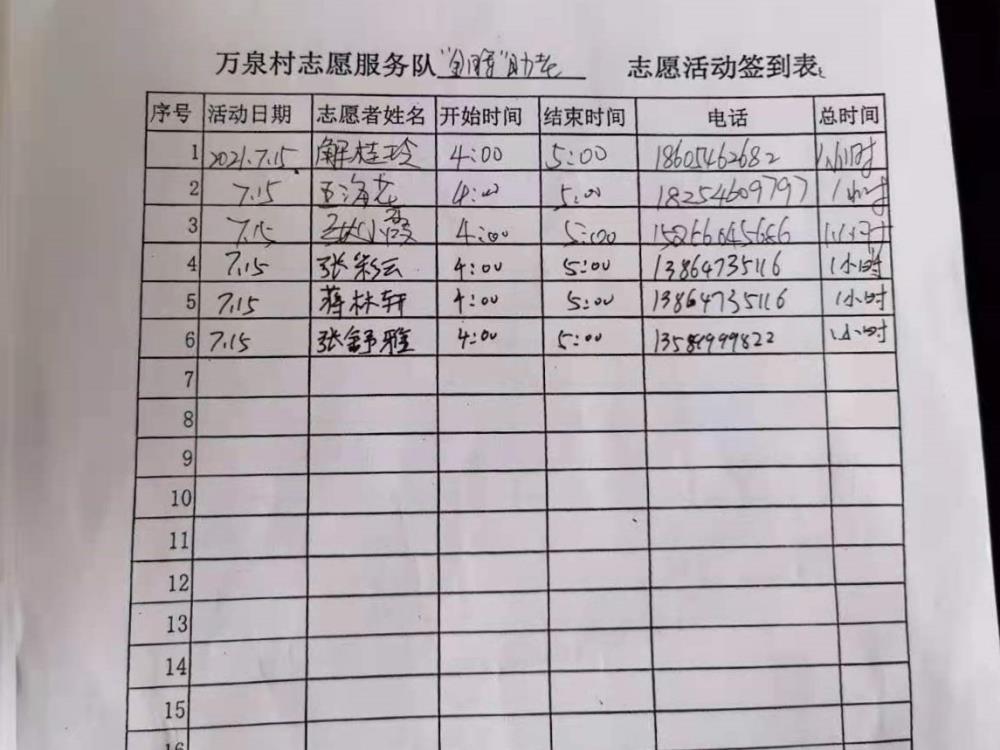 万泉村志愿服务队 助老 志愿活动签到表
序号 活动日期 志愿者姓名 开始时间 结束时间 电话 总时间
1 2021.7.15 解桂玲 4:00 5:00 18605462682 1小时
2 7.15 4:00 5:00 18254609797 1小时
3 7.15 4:00 5:00 1小时
4 7.15 张彩云 4:00 5:00 13864735116 1小时
5 7.15 蒋林轩 4:00 5:00 13864735116 1小时
6 7.15 张舒雅 4:00 5:00 1小时
7
8
9
10
11
12
13
14
15
16